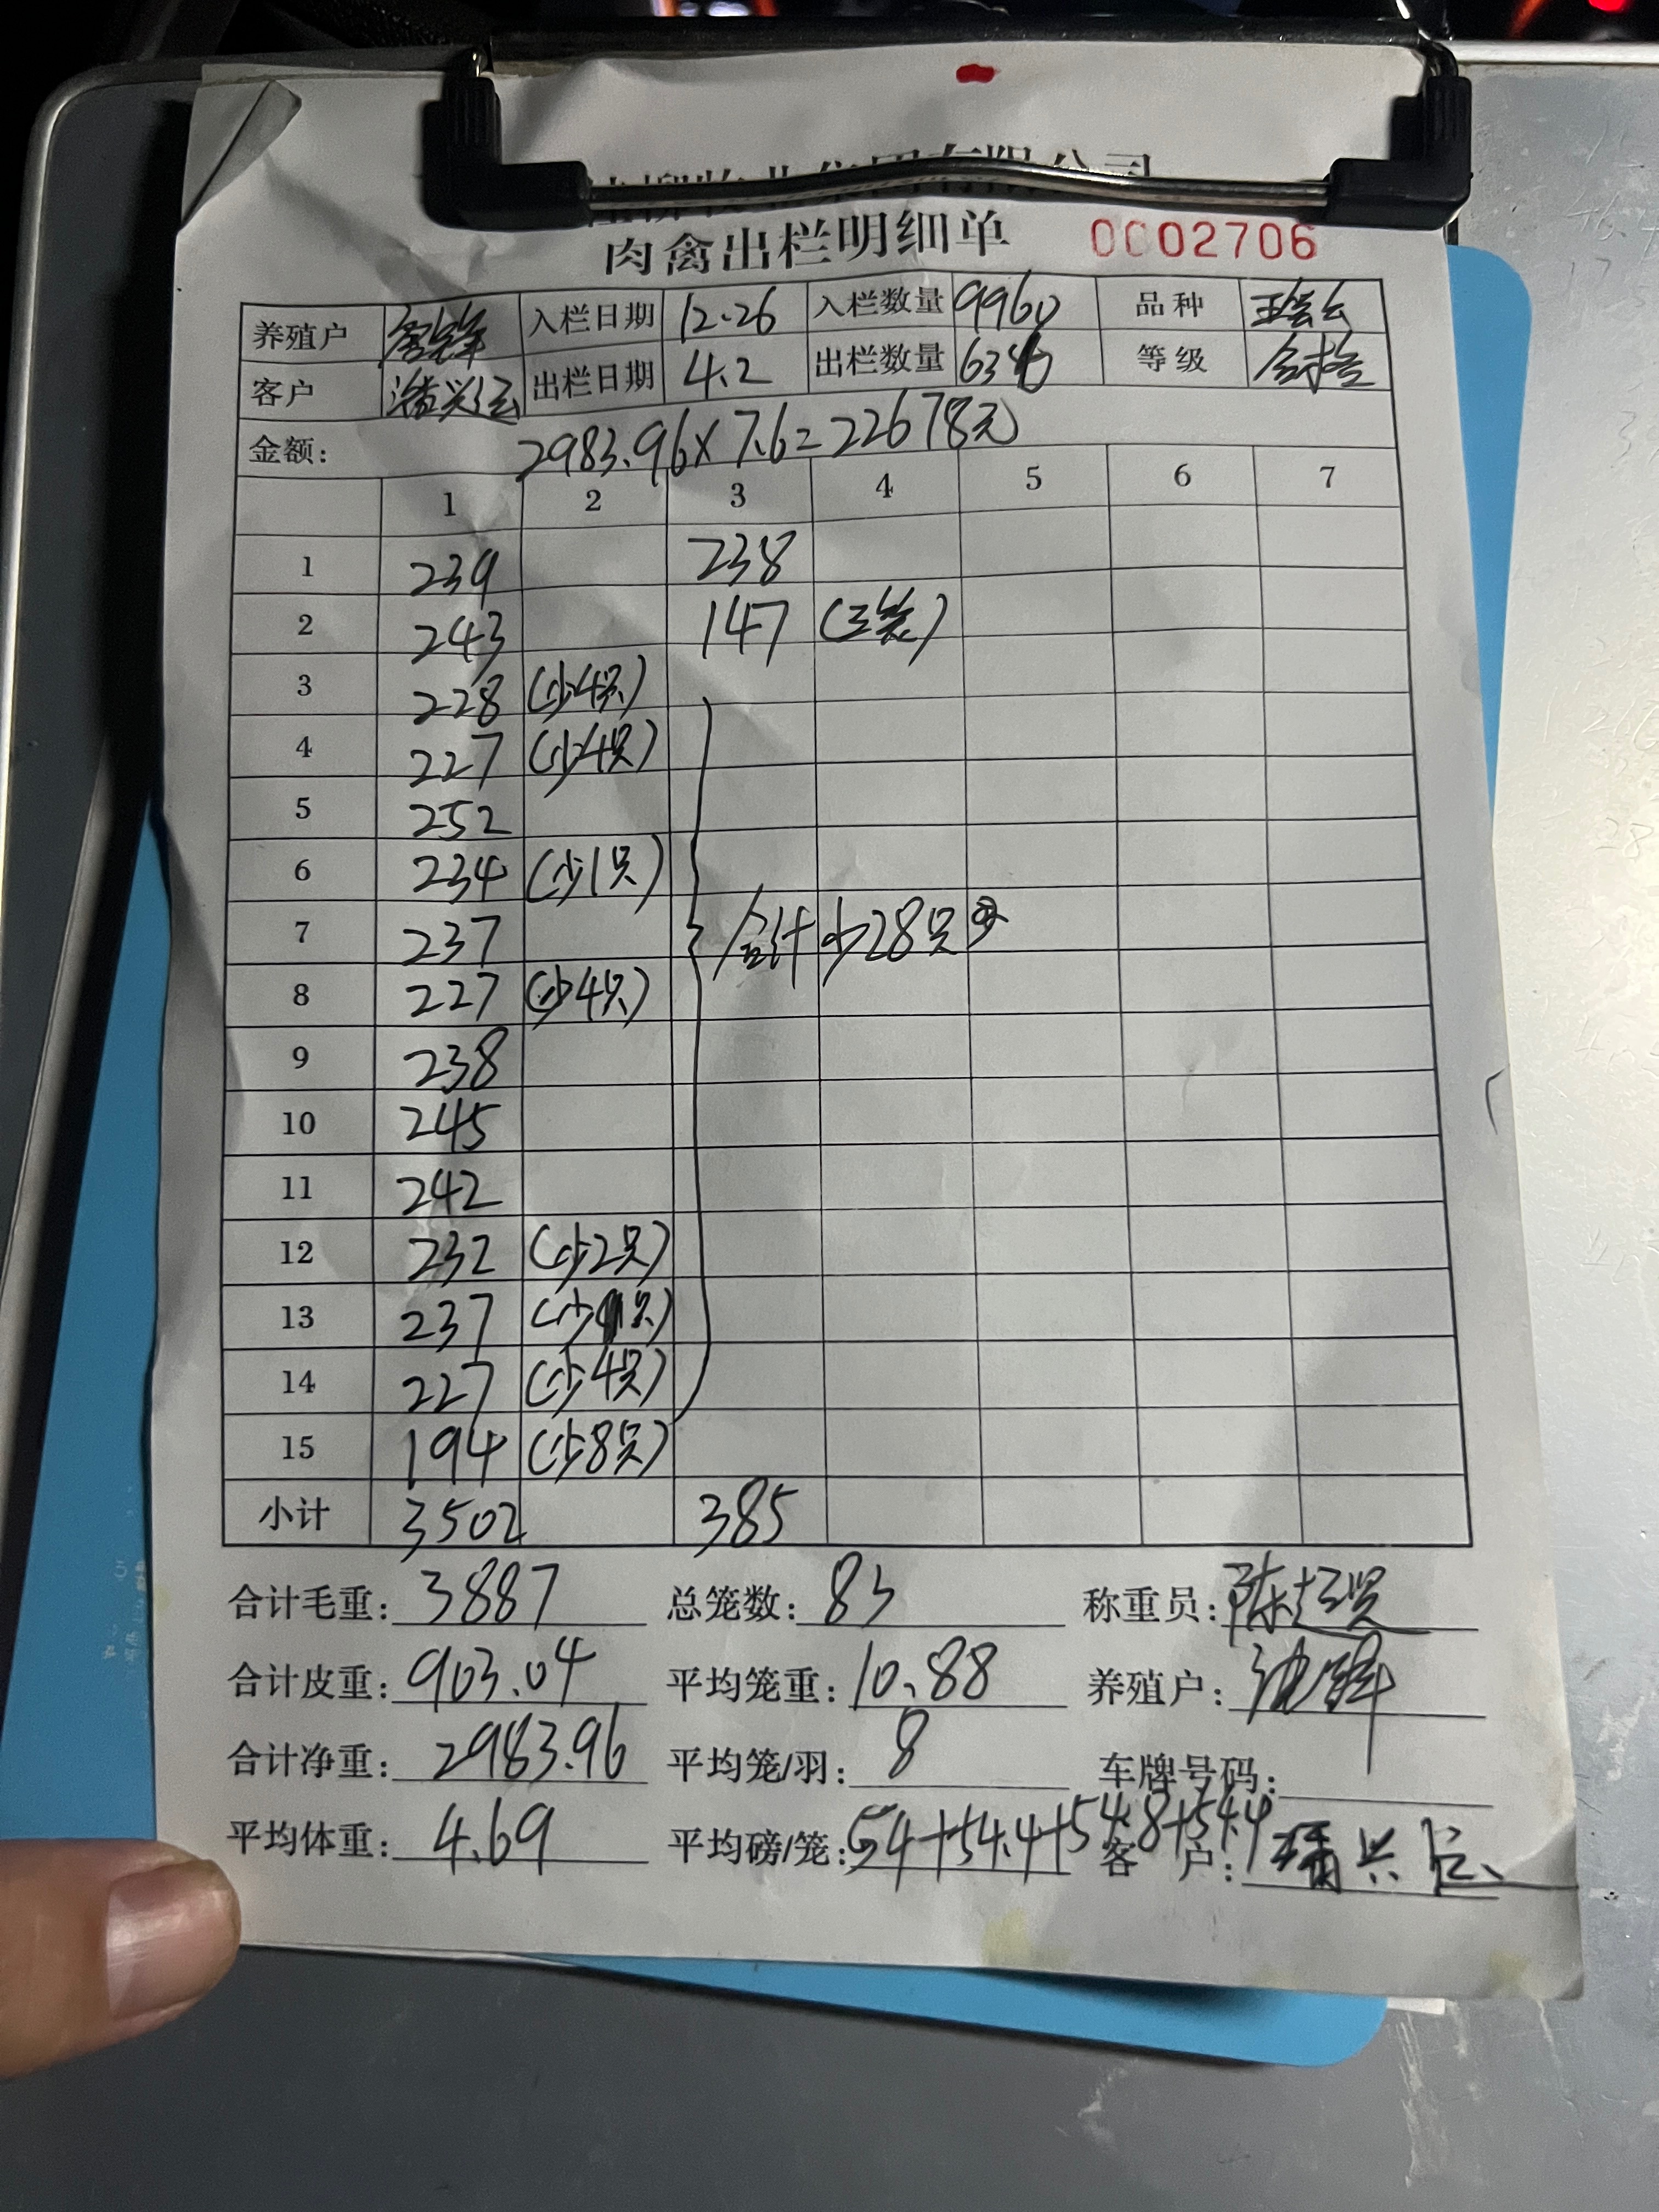 肉禽出栏明细单 0002706
养殖户 入栏日期 12.26 入栏数量 9960 品种
客户 出栏日期 4.2 出栏数量 636 等级 合拾
金额: 2983.96×7.6=22678元
1 2 3 4 5 6 7
1 239 238
2 243 147 (三笼)
3 228 (少4只)
4 227 (少4只)
5 252
6 234 (少1只)
7 237 合计少28只
8 227 (少4只)
9 238
10 245
11 242
12 232 (少2只)
13 237 (少1只)
14 227 (少4只)
15 194 (少8只)
小计 3502 385
合计毛重: 3887 总笼数: 83 称重员:
合计皮重: 903.04 平均笼重: 10.88 养殖户:
合计净重: 2983.96 平均笼/羽: 8 车牌号码:
平均体重: 4.69 平均磅/笼: 54+54.4+54.8+54.4 客户: